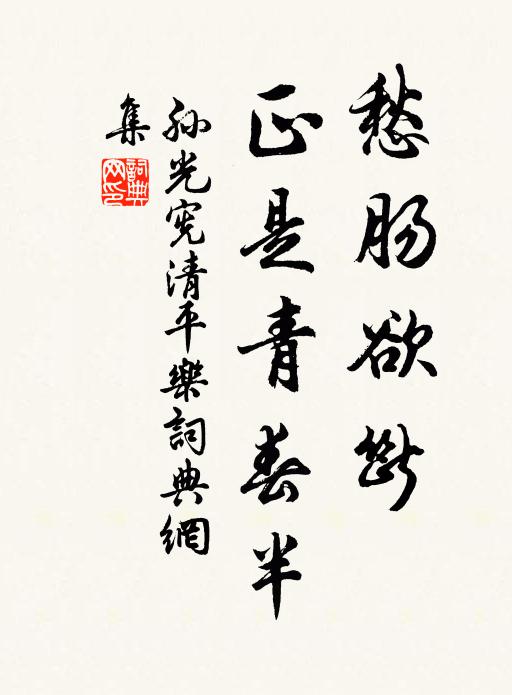 愁肠欲斷
正是青春半
孙光宪清平樂詞典網
集
詞典網印